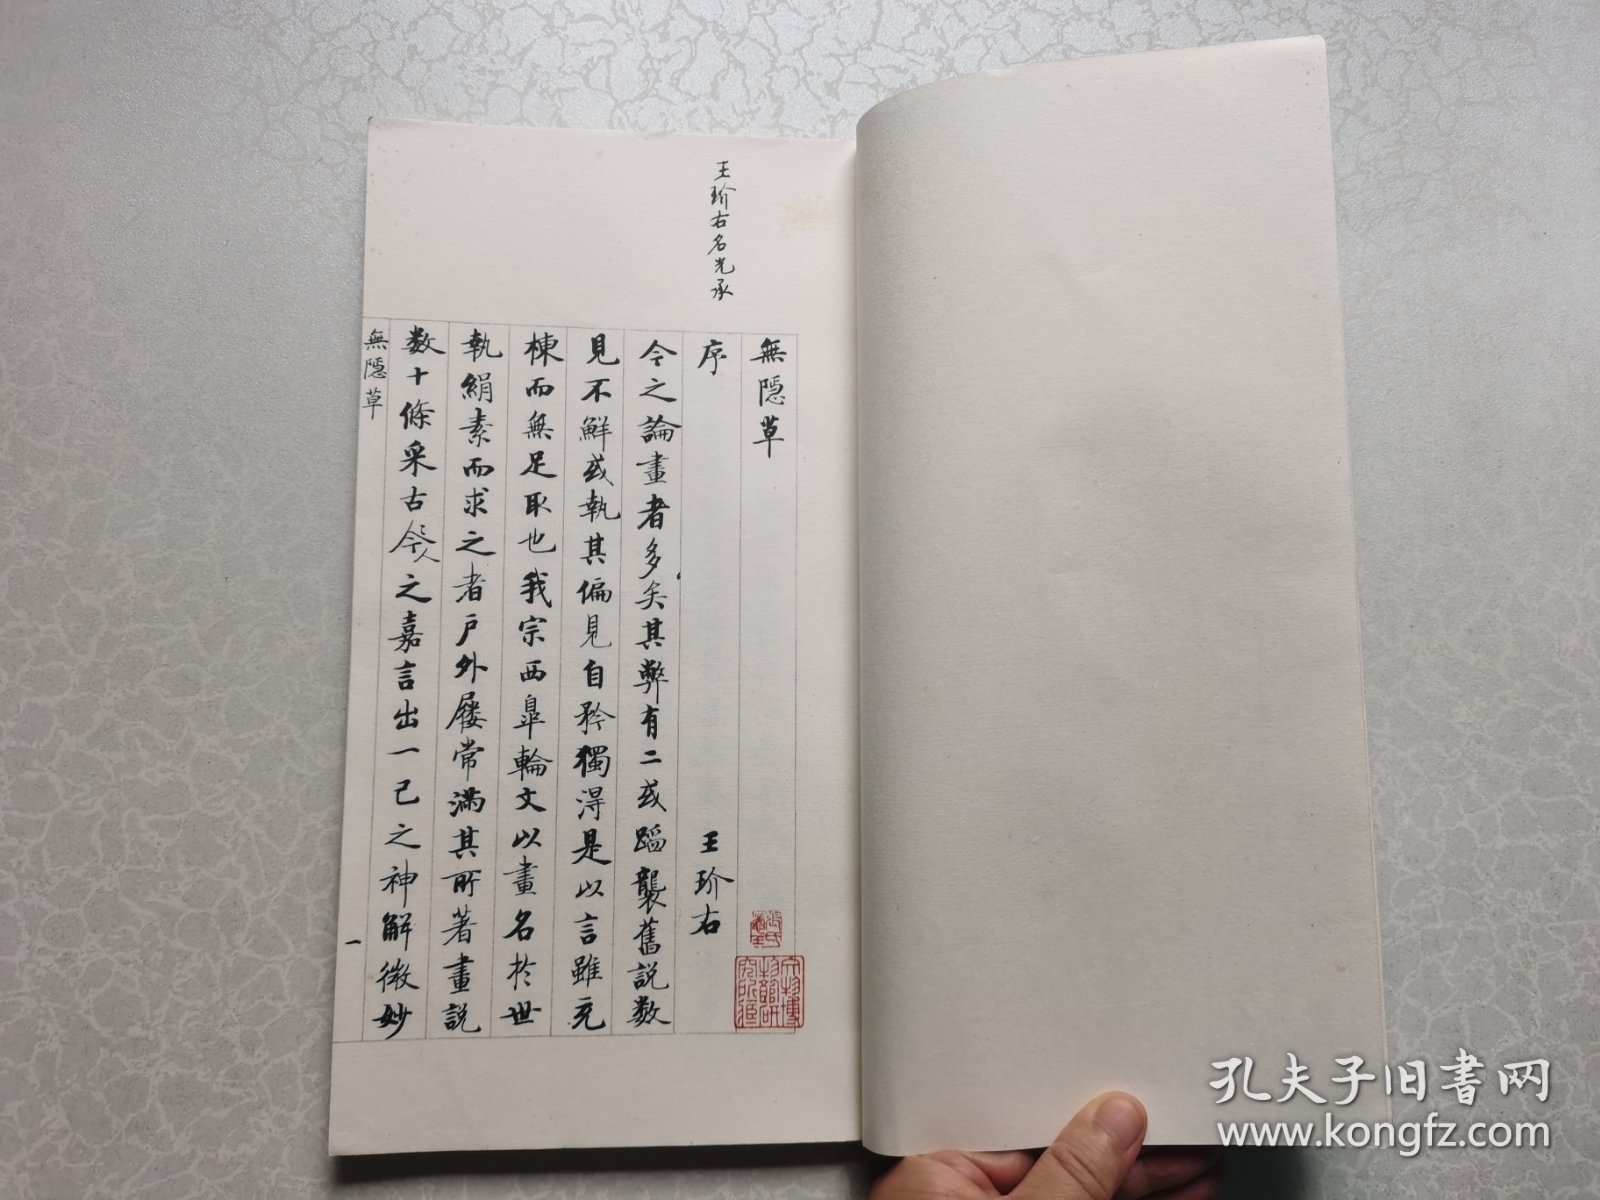 王玠右名光承
無隱草
序 王玠右
今之論畫者多矣其弊有二或蹈襲舊說数
見不鮮或執其偏見自矜獨淂是以言雖充
棟而無足取也我宗西臯輪文以畫名於世
執絹素而求之者戶外屨常滿其所著畫說
数十條采古今人之嘉言出一己之神解微妙
無隱草
一
孔夫子旧書网
www.kongfz.com